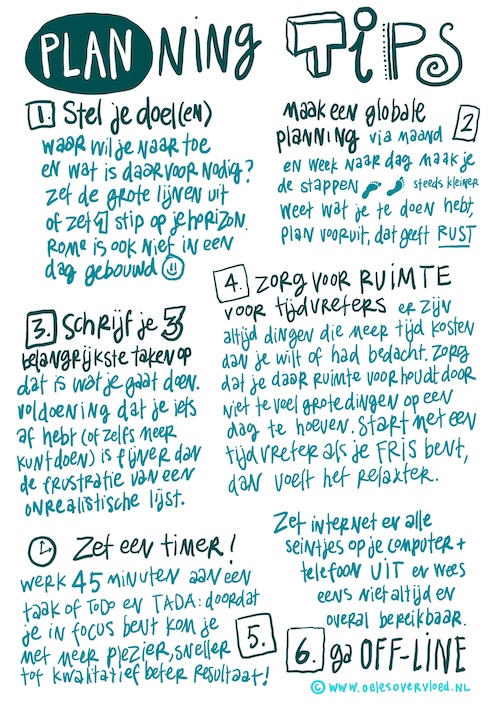 PLANNING TIPS
1. Stel je doel(en)
waar wil je naar toe
en wat is daarvoor nodig?
zet de grote lijnen uit
of zet 1 stip op je horizon.
Rome is ook niet in een
dag gebouwd
2
maak een globale
planning via maand
en week naar dag maak je
de stappen steeds kleiner
weet wat je te doen hebt,
plan vooruit, dat geeft RUST
3. Schrijf je 3
belangrijkste taken op
dat is wat je gaat doen.
voldoening dat je iets
af hebt (of zelfs meer
kunt doen) is fijner dan
de frustratie van een
onrealistische lijst.
4. zorg voor RUIMTE
voor tijdvreters er zijn
altijd dingen die meer tijd kosten
dan je wilt of had bedacht. zorg
dat je daar ruimte voor houdt door
niet te veel grote dingen op een
dag te hoeven. Start met een
tijdvreter als je FRIS bent,
dan voelt het relaxter.
Zet een timer!
werk 45 minuten aan een
taak of ToDo en TADA: doordat
je in focus bent kom je
met meer plezier, sneller
tot kwalitatief beter resultaat!
5.
Zet internet en alle
seintjes op je computer +
telefoon UIT en wees
eens niet altijd en
overal bereikbaar.
6. ga OFF-LINE
© www.oelesovervloed.nl